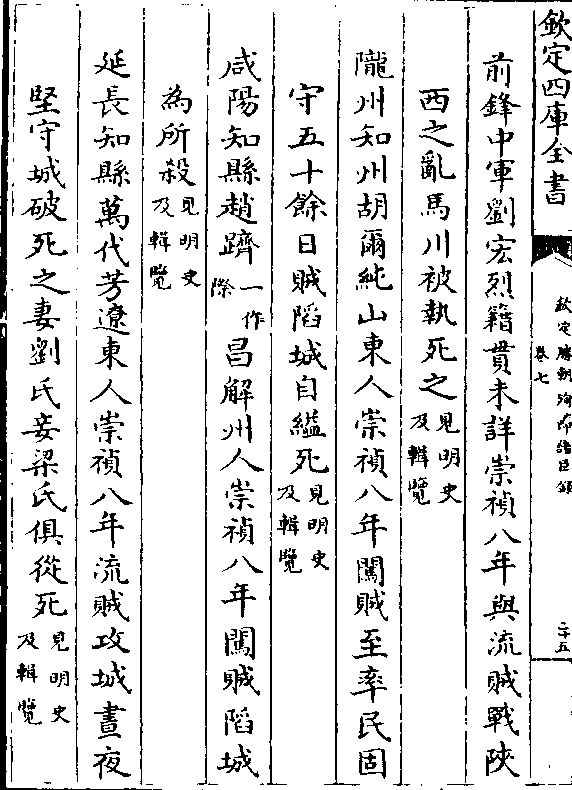 欽定四庫全書
欽定勝朝殉節諸臣錄
卷七
二十五
前鋒中軍劉宏烈籍貫未詳崇禎八年與流賊戰陜
西之亂馬川被執死之見明史及輯覽
隴州知州胡爾純山東人崇禎八年闖賊至率民固
守五十餘日賊䧟城自縊死見明史及輯覽
咸陽知縣趙躋一作際昌解州人崇禎八年闖賊䧟城
為所殺見明史及輯覽
延長知縣萬代芳遼東人崇禎八年流賊攻城晝夜
堅守城破死之妻劉氏妾梁氏俱從死見明史及輯覽